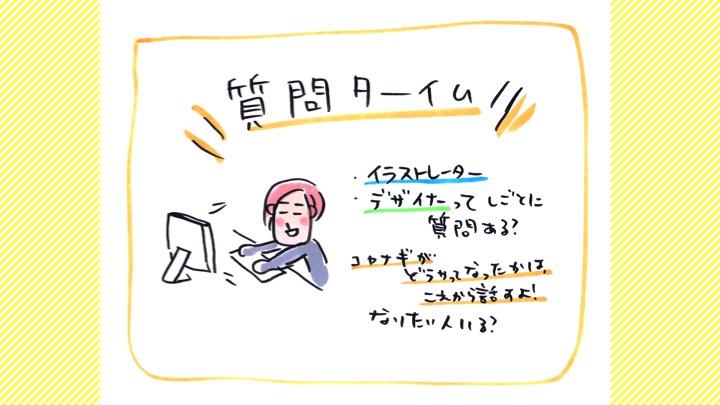 質問タイム
・イラストレーター
・デザイナーって しごとに
質問ある?
コヤナギが
どうやってなったかは、
これから話すよ!
なりたい人いる?